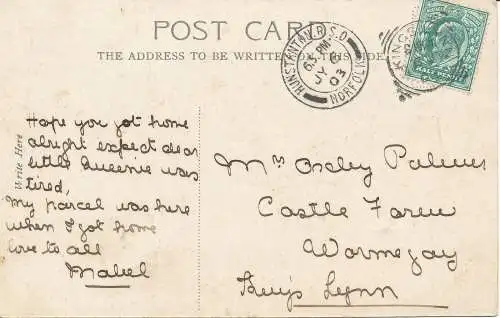 POST CARD
THE ADDRESS TO BE WRITTEN ON THIS SIDE
HUNSTANTON R.S.O
6.5 PM
JY 6
03
NORFOLK
KING'S
HALF PENNY
Write Here
Hope you got home
alright expect dear
little Queenie was
tired,
My parcel was here
when I got home
love to all
Mabel
Mrs Oxley Palmer
Castle Farm
Wormegay
King's Lynn